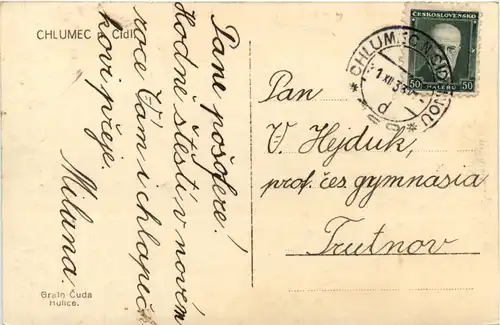 CHLUMEC n. Cidl.
Pane pošfere!
Hodně štěstí v novém
roce Vám i chlapeč-
kovi přeje.
Milana.
Grafo Čuda
Holice.
ČESKOSLOVENSKO
50 HALÉŘŮ 50
CHLUMEC N. CIDLINOU
1 XII 38
d
Pan
V. Hejduk,
prof. čes. gymnasia
Trutnov